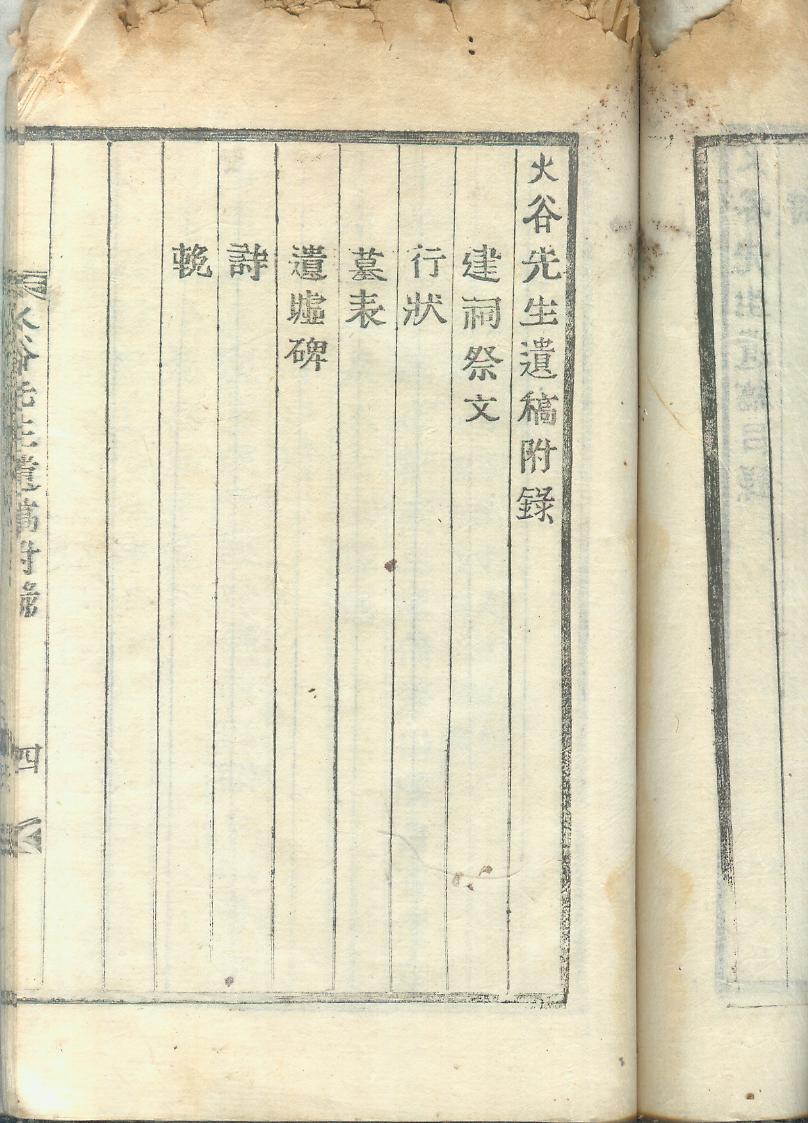 火谷先生遺稿附錄
建祠祭文
行狀
墓表
遺墟碑
詩
輓
火谷先生遺稿附錄
四